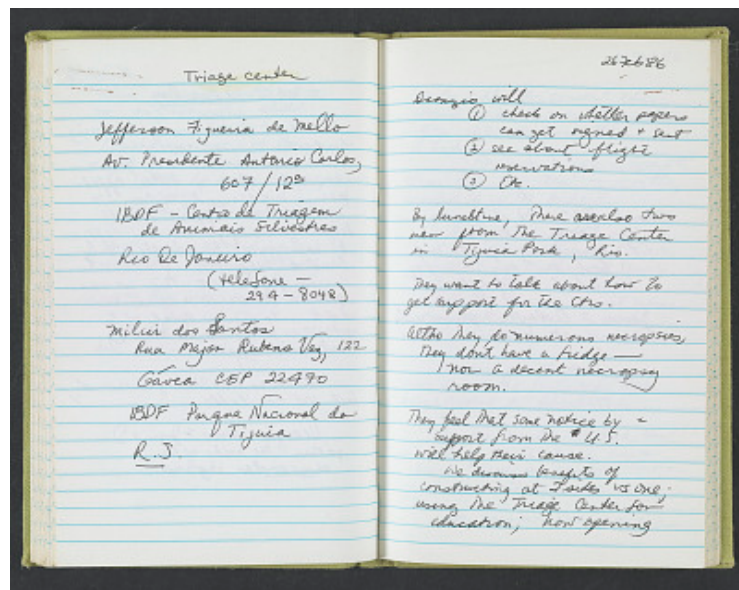 Triage center
Jefferson Figueira de Mello
Av. Presidente Antonio Carlos,
607/12º
IBDF - Centro de Triagem
de Animais Silvestres
Rio De Janeiro
(telefone -
294-8048)
dos Santos
Rua Major Rubens Vaz, 122
Gávea CEP 22470
IBDF Parque Nacional da
Tijuca
R.J
26 Feb 86
will
① check on whether papers
can get signed + sent
② see about flight
reservations
③ Etc.
By lunchtime, There are also two
men from The Triage Center
in Tijuca Park, Rio.
They want to talk about how to
get support for the Ctrs.
Altho They do numerous necropsies,
They don't have a fridge —
nor a decent necropsy
room.
They feel That some notice by -
support from the U.S.
will help their cause.
We discuss benefits of
constructing at 2 sites vs one;
using The Triage Center for
education; how opening